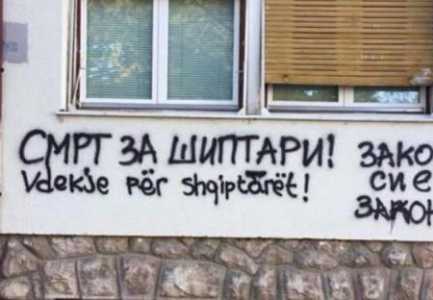 СМРТ ЗА ШИПТАРИ!
Vdekje për shqiptarët!
ЗАКО
СИЕ
ЗАКОН